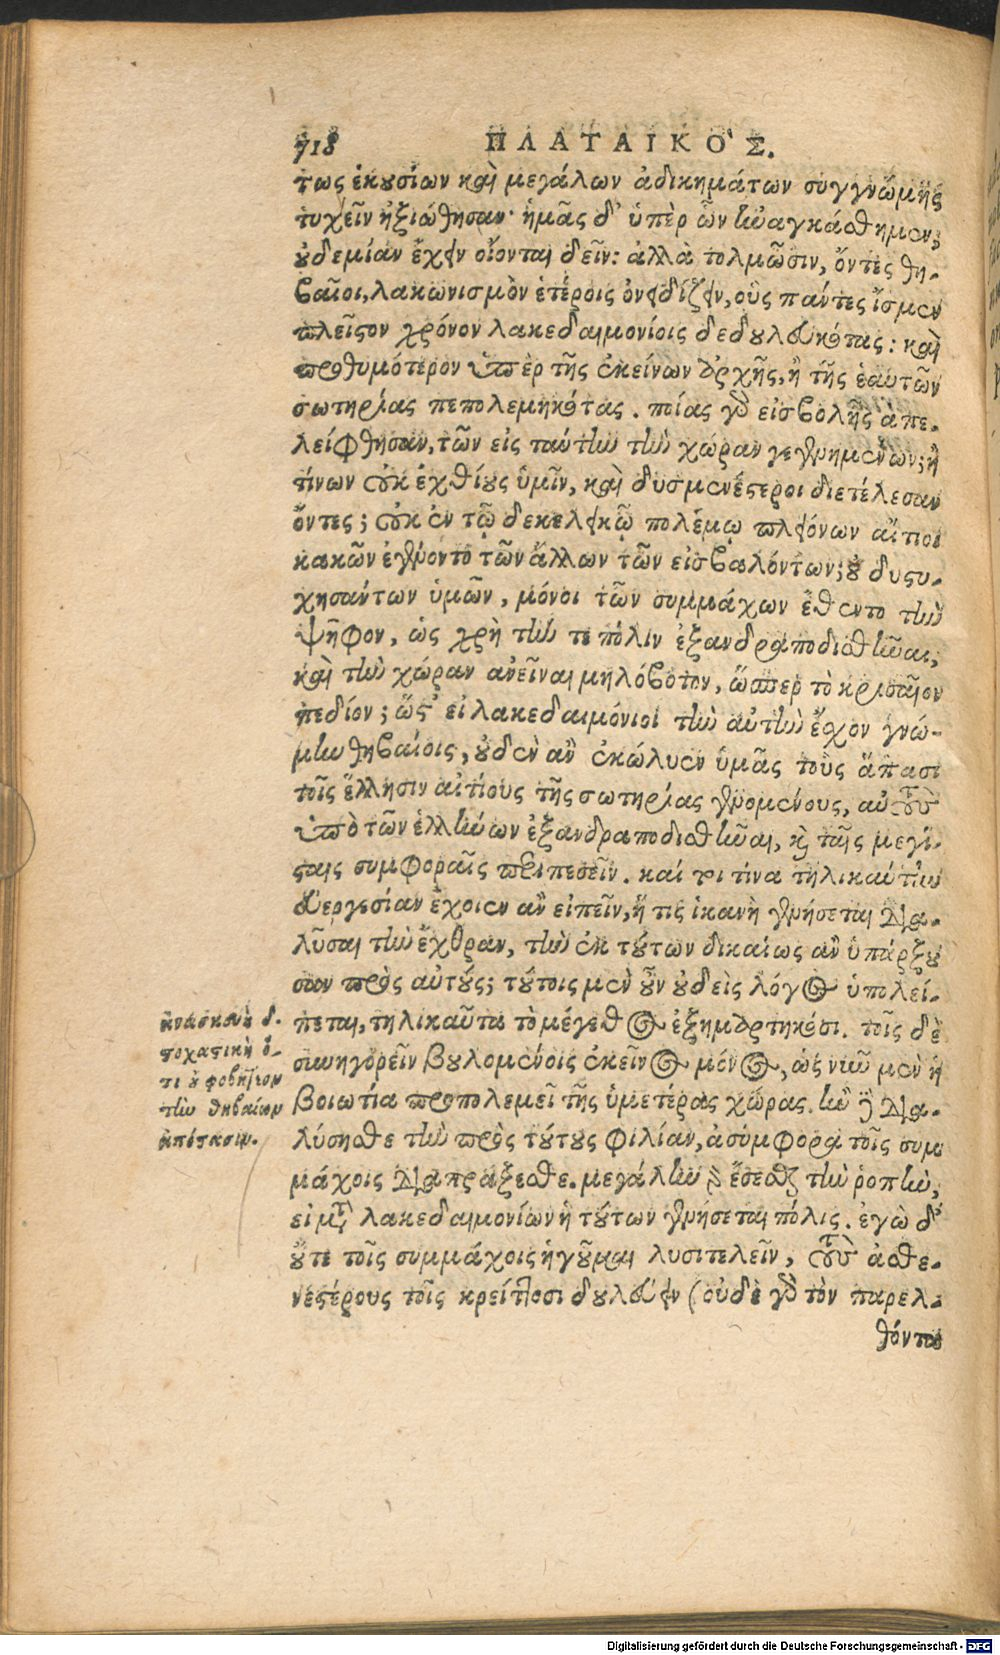 718 ΠΛΑΤΑΙΚΟ῾Σ.
τως ἑκουσίων καὶ μεγάλων ἀδικημάτων συγγνώμης
τυχεῖν ἠξιώθησαν· ἡμᾶς δ' ὑπὲρ ὧν ἠναγκάσθημεν,
οὐδεμίαν ἔχειν οἴονται δεῖν: ἀλλὰ τολμῶσιν, ὄντες θη-
βαῖοι, λακωνισμὸν ἑτέροις ὀνειδίζειν, οὓς πάντες ἴσμεν
πλεῖστον χρόνον λακεδαιμονίοις δεδουλευκότας: καὶ
προθυμότερον ὑπὲρ τῆς ἐκείνων ἀρχῆς, ἢ τῆς ἑαυτῶν
σωτηρίας πεπολεμηκότας. ποίας γὰρ εἰσβολῆς ἀπε-
λείφθησαν, τῶν εἰς ταύτην τὴν χώραν γεγενημένων; ἢ
τίνων οὐκ ἐχθίους ὑμῖν, καὶ δυσμενέστεροι διετέλεσαν
ὄντες; οὐκ ἐν τῷ δεκελεικῷ πολέμῳ πλειόνων αἴτιοι
κακῶν ἐγένοντο τῶν ἄλλων τῶν εἰσβαλόντων; οὐ δυστυ-
χησάντων ὑμῶν, μόνοι τῶν συμμάχων ἔθεντο τὴν
ψῆφον, ὡς χρὴ τήν τε πόλιν ἐξανδραποδισθῆναι,
καὶ τὴν χώραν ἀνεῖναι μηλόβοτον, ὥσπερ τὸ κρισαῖον
πεδίον; ὥστ' εἰ λακεδαιμόνιοι τὴν αὐτὴν ἔσχον γνώ-
μην θηβαίοις, οὐδὲν ἂν ἐκώλυεν ὑμᾶς τοὺς ἅπασι
τοῖς ἕλλησιν αἰτίους τῆς σωτηρίας γενομένους, αὐτοὺς
ὑπὸ τῶν ἑλλήνων ἐξανδραποδισθῆναι, καὶ ταῖς μεγί-
σταις συμφοραῖς περιπεσεῖν. καί τοι τίνα τηλικαύτην
εὐεργεσίαν ἔχοιεν ἂν εἰπεῖν, ἥ τις ἱκανὴ γενήσεται δια-
λῦσαι τὴν ἔχθραν, τὴν ἐκ τούτων δικαίως ἂν ὑπάρξου
σαν πρὸς αὐτούς; τούτοις μὲν οὖν οὐδεὶς λόγος ὑπολεί-
πεται, τηλικαῦτα τὸ μέγεθος ἐξημαρτηκόσι. τοῖς δὲ
συνηγορεῖν βουλομένοις ἐκεῖνος μόνος, ὡς νῦν μὲν ἡ
βοιωτία προπολεμεῖ τῆς ὑμετέρας χώρας. ἢν δὲ δια-
λύσησθε τὴν πρὸς τούτους φιλίαν, ἀσύμφορα τοῖς συμ
μάχοις διαπράξεσθε. μεγάλην γὰρ ἔσεσθαι τὴν ῥοπὴν,
εἰ μετὰ λακεδαιμονίων ἡ τούτων γενήσεται πόλις. ἐγὼ δ'
οὔτε τοῖς συμμάχοις ἡγοῦμαι λυσιτελεῖν, τοὺς ἀσθε-
νεστέρους τοῖς κρείττοσι δουλεύειν (οὐδὲ γὰρ τὸν παρελ-
θόντα
ἀνασκευὴ
στοχαστικὴ ὅ-
τι οὐ φοβητέον
τὴν θηβαίων
ἀπόστασιν.